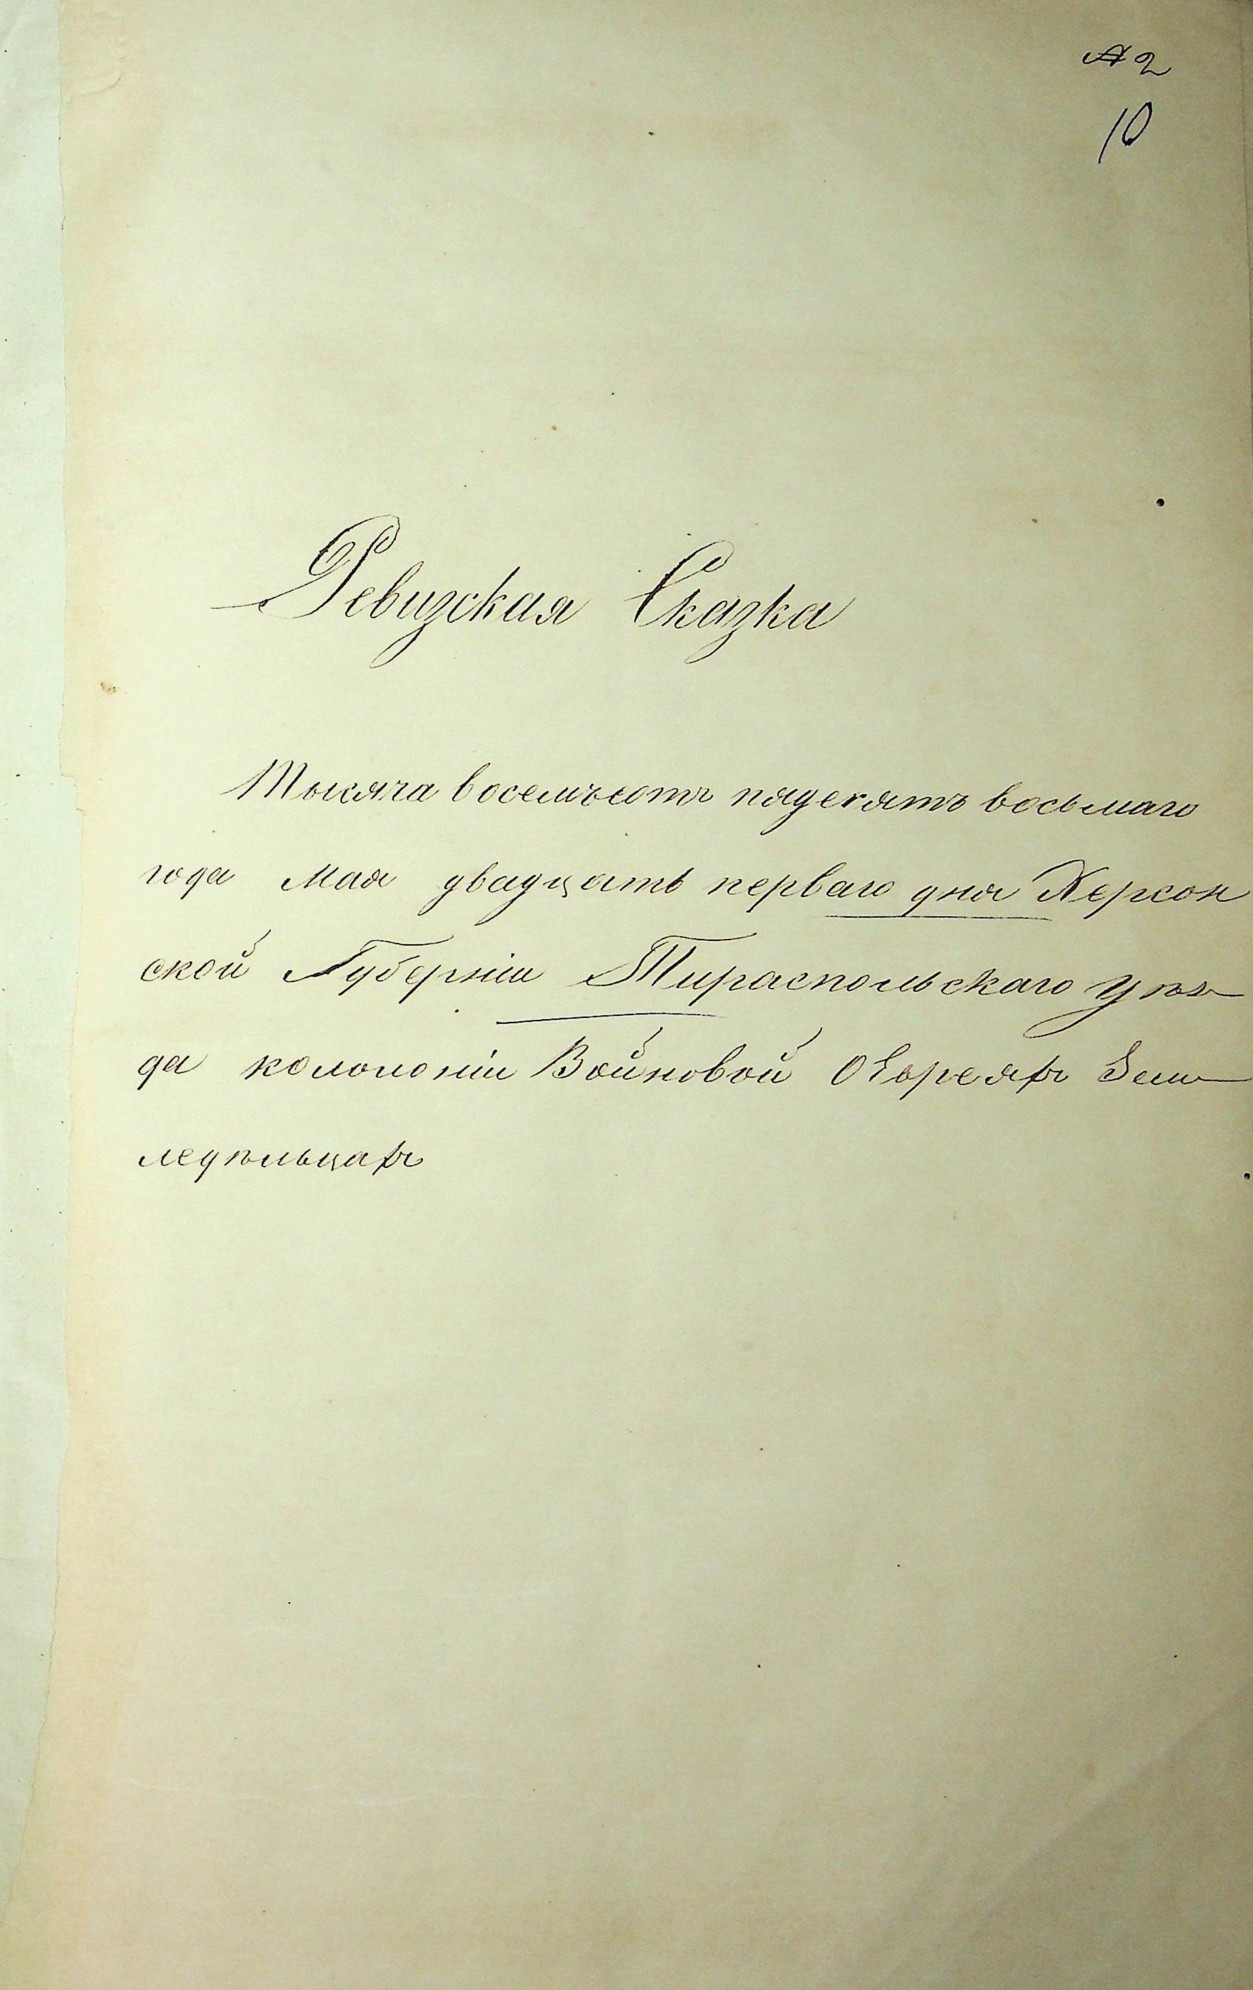 10
Ревизская Сказка
Тысяча восемъсотъ пядесятъ восьмаго
года Мая двадцать перваго дня Херсон
ской Губерніи Тираспольскаго Уѣз
да колононіи Войновой О Евреяхъ Зем
ледѣльцахъ